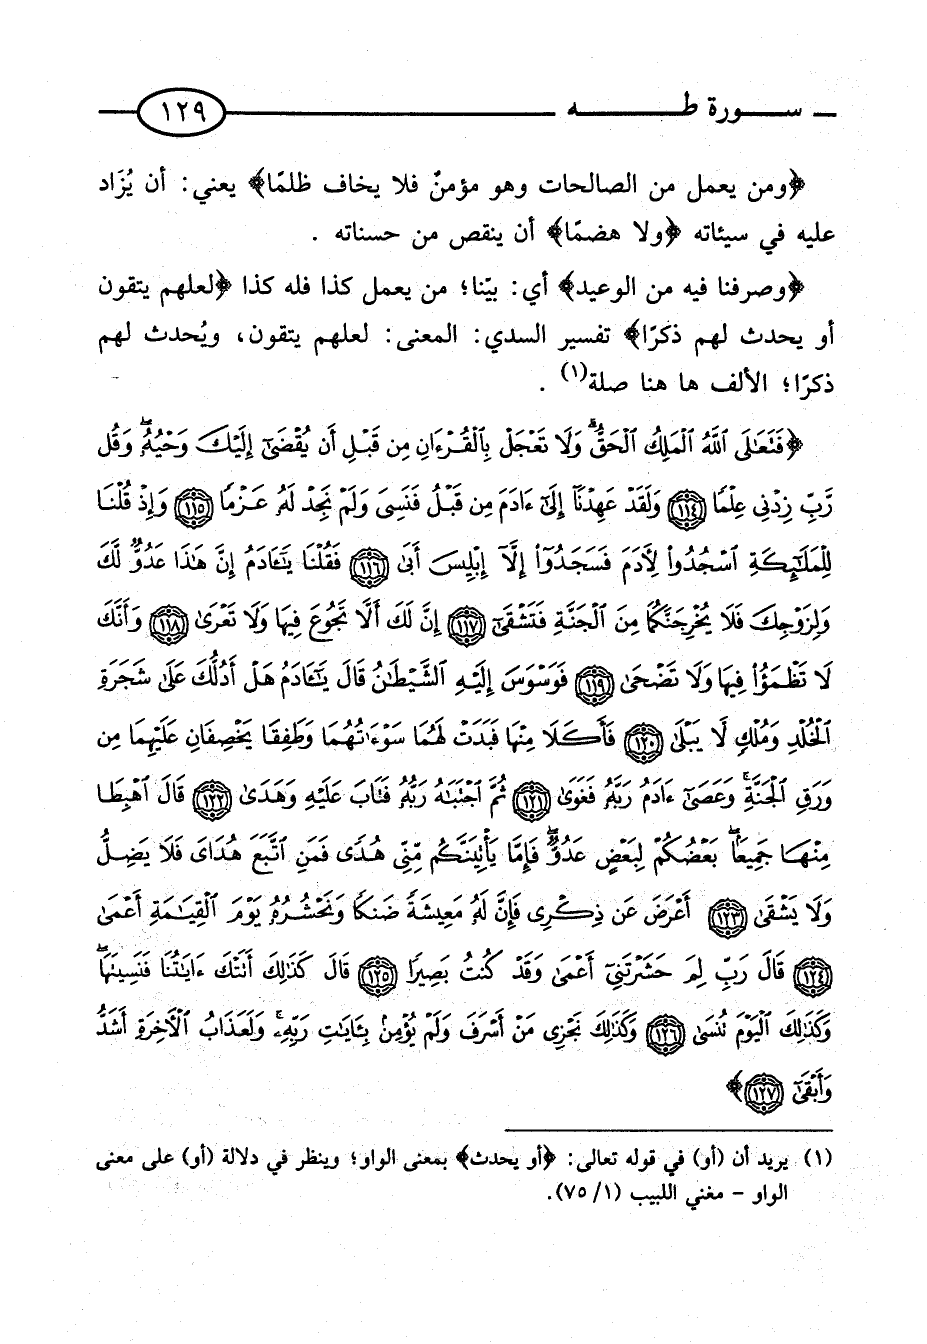 سورة طه ١٢٩
﴿ومن يعمل من الصالحات وهو مؤمنٌ فلا يخاف ظلمًا﴾ يعني: أن يُزَاد
عليه في سيئاته ﴿ولا هضمًا﴾ أن ينقص من حسناته .
﴿وصرفنا فيه من الوعيد﴾ أي: بيّنا؛ من يعمل كذا فله كذا ﴿لعلهم يتقون
أو يحدث لهم ذكرًا﴾ تفسير السدي: المعنى: لعلهم يتقون، ويُحدث لهم
ذكرًا؛ الألف ها هنا صلة(١) .
﴿فَتَعَٰلَى ٱللَّهُ ٱلْمَلِكُ ٱلْحَقُّۗ وَلَا تَعْجَلْ بِٱلْقُرْءَانِ مِن قَبْلِ أَن يُقْضَىٰٓ إِلَيْكَ وَحْيُهُۥۖ وَقُل
رَّبِّ زِدْنِي عِلْمًا ١١٤ وَلَقَدْ عَهِدْنَآ إِلَىٰٓ ءَادَمَ مِن قَبْلُ فَنَسِىَ وَلَمْ نَجِدْ لَهُۥ عَزْمًا ١١٥ وَإِذْ قُلْنَا
لِلْمَلَٰٓئِكَةِ ٱسْجُدُوا۟ لِأٓدَمَ فَسَجَدُوٓا۟ إِلَّآ إِبْلِيسَ أَبَىٰ ١١٦ فَقُلْنَا يَٰٓـَٔادَمُ إِنَّ هَٰذَا عَدُوٌّ لَّكَ
وَلِزَوْجِكَ فَلَا يُخْرِجَنَّكُمَا مِنَ ٱلْجَنَّةِ فَتَشْقَىٰٓ ١١٧ إِنَّ لَكَ أَلَّا تَجُوعَ فِيهَا وَلَا تَعْرَىٰ ١١٨ وَأَنَّكَ
لَا تَظْمَؤُا۟ فِيهَا وَلَا تَضْحَىٰ ١١٩ فَوَسْوَسَ إِلَيْهِ ٱلشَّيْطَٰنُ قَالَ يَٰٓـَٔادَمُ هَلْ أَدُلُّكَ عَلَىٰ شَجَرَةِ
ٱلْخُلْدِ وَمُلْكٍ لَّا يَبْلَىٰ ١٢٠ فَأَكَلَا مِنْهَا فَبَدَتْ لَهُمَا سَوْءَٰتُهُمَا وَطَفِقَا يَخْصِفَانِ عَلَيْهِمَا مِن
وَرَقِ ٱلْجَنَّةِۚ وَعَصَىٰٓ ءَادَمُ رَبَّهُۥ فَغَوَىٰ ١٢١ ثُمَّ ٱجْتَبَٰهُ رَبُّهُۥ فَتَابَ عَلَيْهِ وَهَدَىٰ ١٢٢ قَالَ ٱهْبِطَا
مِنْهَا جَمِيعًۢاۖ بَعْضُكُمْ لِبَعْضٍ عَدُوٌّۖ فَإِمَّا يَأْتِيَنَّكُم مِّنِّى هُدًى فَمَنِ ٱتَّبَعَ هُدَاىَ فَلَا يَضِلُّ
وَلَا يَشْقَىٰ ١٢٣ أَعْرَضَ عَن ذِكْرِى فَإِنَّ لَهُۥ مَعِيشَةً ضَنكًا وَنَحْشُرُهُۥ يَوْمَ ٱلْقِيَٰمَةِ أَعْمَىٰ
١٢٤ قَالَ رَبِّ لِمَ حَشَرْتَنِىٓ أَعْمَىٰ وَقَدْ كُنتُ بَصِيرًا ١٢٥ قَالَ كَذَٰلِكَ أَتَتْكَ ءَايَٰتُنَا فَنَسِينَهَاۖ
وَكَذَٰلِكَ ٱلْيَوْمَ تُنسَىٰ ١٢٦ وَكَذَٰلِكَ نَجْزِى مَنْ أَسْرَفَ وَلَمْ يُؤْمِنۢ بِـَٔايَٰتِ رَبِّهِۦۚ وَلَعَذَابُ ٱلْأٓخِرَةِ أَشَدُّ
وَأَبْقَىٰٓ ١٢٧﴾
(١) يريد أن (أو) في قوله تعالى: ﴿أو يحدث﴾ بمعنى الواو؛ وينظر في دلالة (أو) على معنى
الواو - مغني اللبيب (١/ ٧٥).